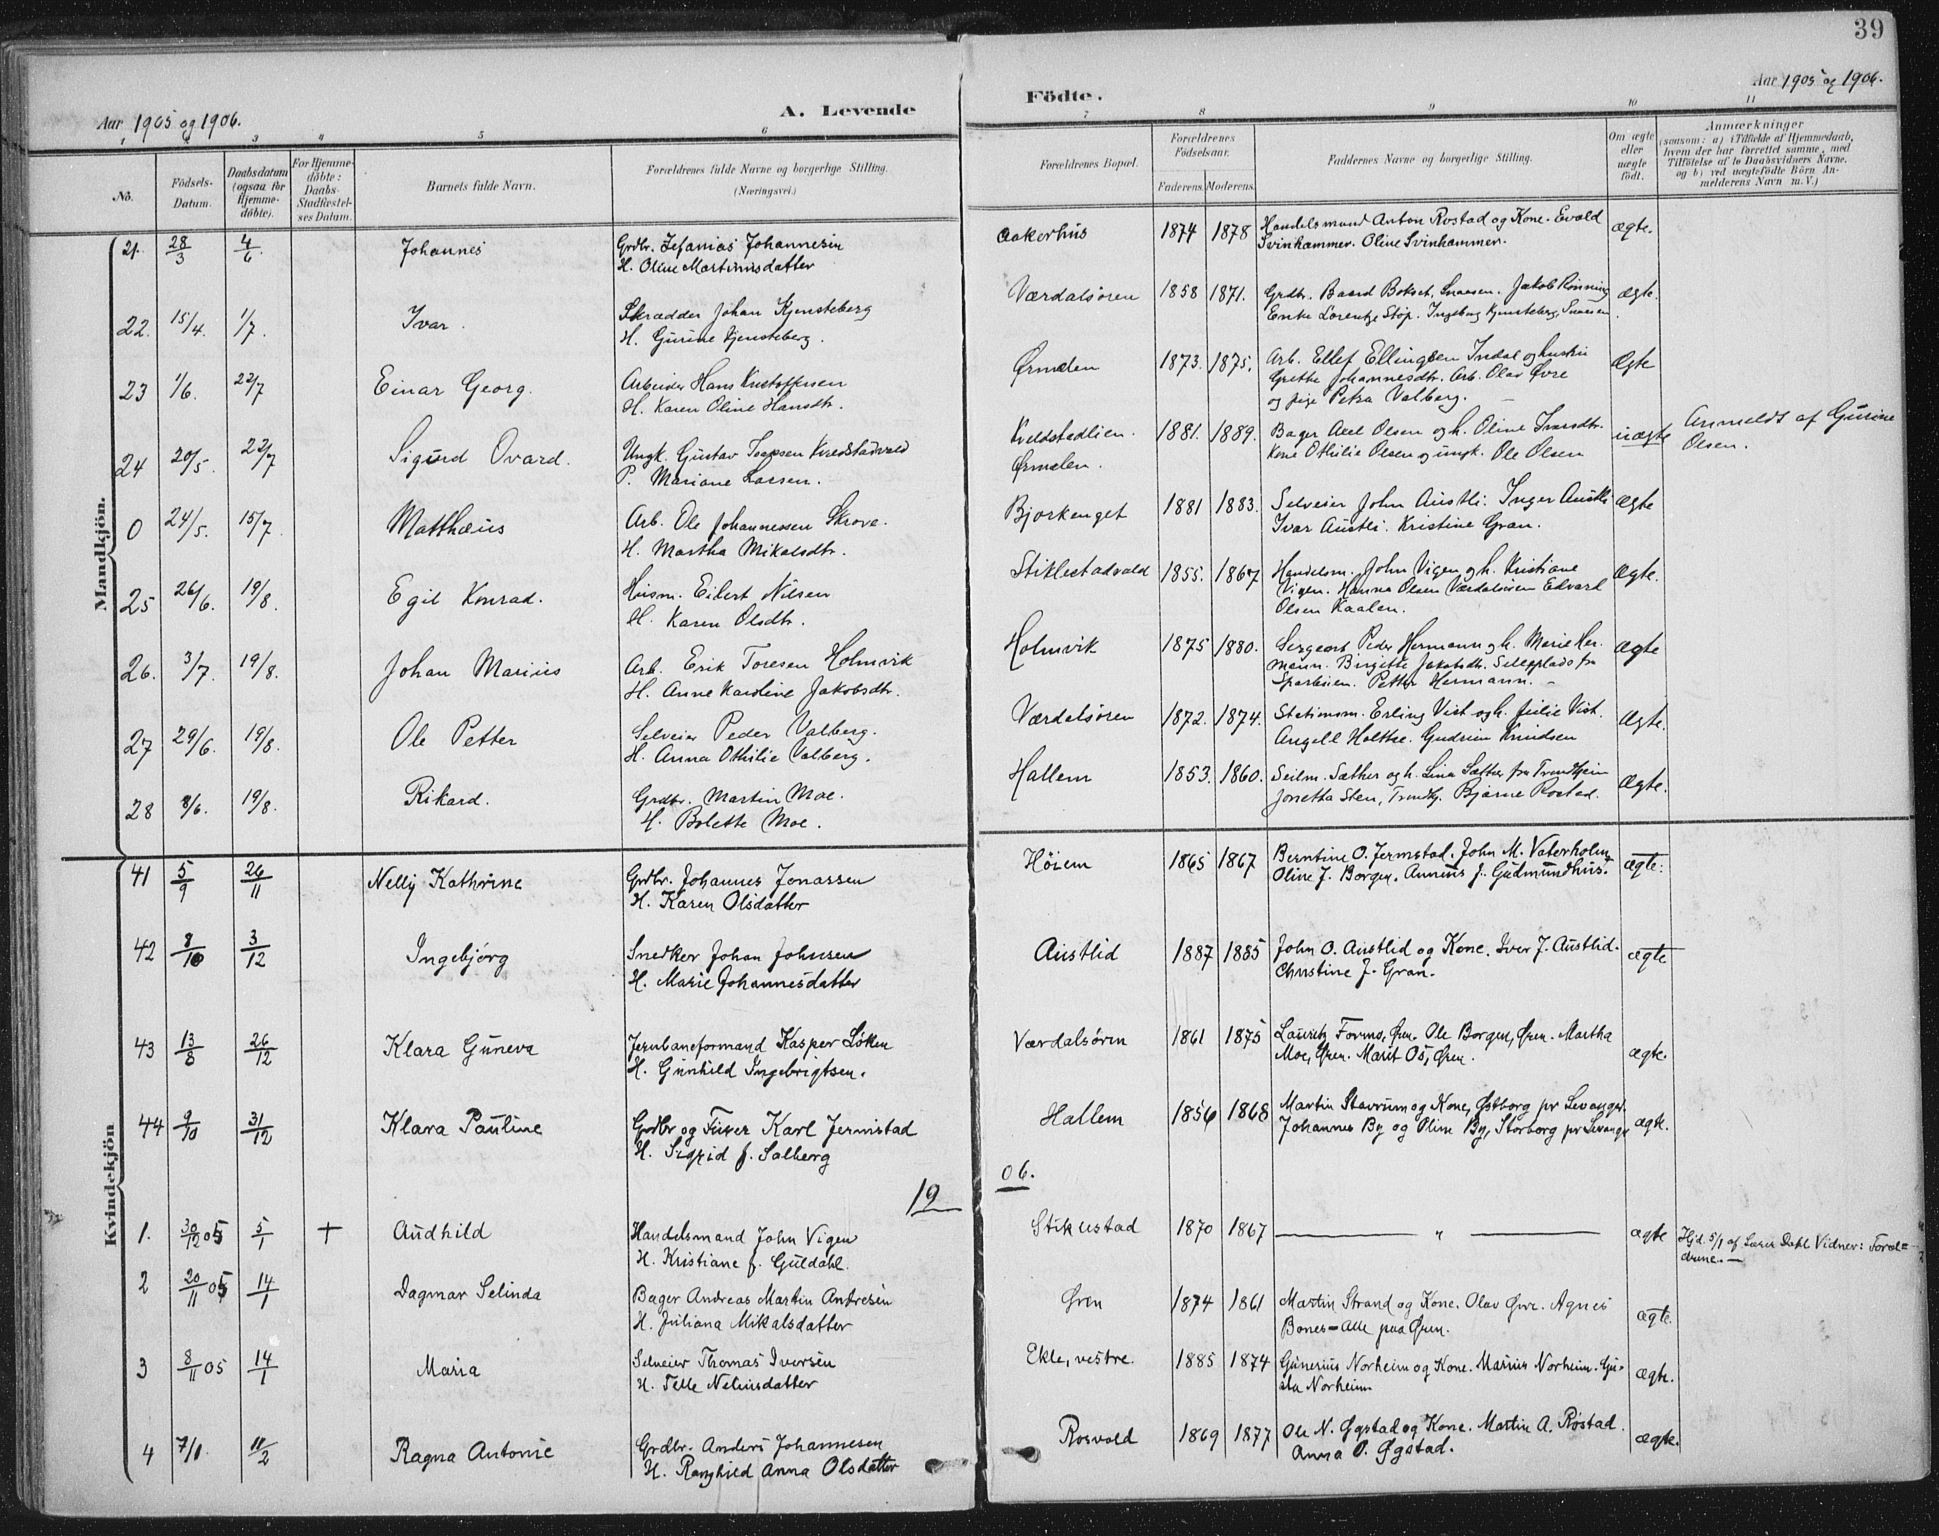 39
Aar 1905 og 1906.
A. Levende
Födte.
Aar 1905 og 1906.
1 2 3 4 5 6 7 8 9 10 11
No.
Födsels-
Datum.
Daabsdatum
(ogsaa for
Hjemme-
döbte).
For Hjemme-
döbte:
Daabs-
Stadfæstel-
ses Datum.
Barnets fulde Navn.
Forældrenes fulde Navne og borgerlige Stilling.
(Næringsvei.)
Forældrenes Bopæl.
Forældrenes
Födselsaar.
Faderens. Moderens.
Faddernes Navne og borgerlige Stilling.
Om ægte
eller
uægte
födt.
Anmærkninger
(saasom: a) i Tilfælde af Hjemmedaab,
hvem der har forrettet samme, med
Tilföielse af to Daabsvidners Navne.
og b) ved uægtefödte Börn An-
melderens Navn m. V.)
Mandkjön.
21. 28/3 4/6. Johannes Grdbr. Zefanias Johannesen
H. Oline Martinusdatter
Aakerhus 1874 1878 Handelsmand Anton Rostad og Kone. Evald
Svinhammer. Oline Svinhammer.
ægte.
22. 15/4. 1/7. Ivar. Skrædder Johan Kjensteberg
H. Gurine Kjensteberg.
Værdalsøren 1858 1871. Grdbr. Baard Bokset, Snaasen. Jakob Rönning
Enke Lorentze Stöp. Ingeborg Kjensteberg, Snaasen.
ægte.
23 1/6. 22/7 Einar Georg. Arbeider Hans Kristoffersen
H. Karen Oline Hansdtr.
Ørmelen 1873. 1875. Arb. Ellef Ellingsen Indal og hustru
Grethe Johannesdtr. Arb. Olav Øvre
og pige Petra Valberg.
Ægte
24 20/5. 22/7 Sigurd Ovard. Ungk. Gustav Kveldstadvald
P. Mariane Larsen.
Kveldstadlien.
Ørmelen.
1881. 1889. Bager Axel Olsen og h. Oline Ivarsdtr.
Kone Othilie Olsen og ungk. Ole Olsen
uægte Anmeldt af Gurine
Olsen.
0 24/5. 15/7. Matthæus Arb. Ole Johannessen Skrove.
H. Martha Mikalsdtr.
Bjørkenget 1881 1883. Selveier John Austli. Inger Austli
Ivar Austli. Kristine Gran.
Ægte
25 26/6. 19/8. Egil Konrad. Husm. Eibert Nilsen
H. Karen Olsdtr.
Stiklestadvald 1855. 1867 Handelsm. John Vigen og h. Kristiane
Vigen. Hanna Olsen Værdalsøren Edvard
Olsen Kaalen.
Ægte.
26. 3/7. 19/8. Johan Marius Arb. Erik Toresen Holmvik
H. Anne Karoline Jakobsdtr.
Holmvik 1875 1880. Sergeant Peder Hermann og h. Marie Her-
mann. Birgitte Jakobsdtr. fra
Sparbuen. Petter Hermann.
Ægte
27 29/6. 19/8. Ole Petter Selveier Peder Valberg.
H. Anna Othilie Valberg.
Værdalsøren 1872. 1874. Stationsm. Erling Vist og h. Julie Vist.
Angell Holthe. Gudrun Knudsen
Ægte.
28 8/6. 19/8. Rikard. Grdbr. Martin Moe.
H. Bolette Moe.
Hallem 1853. 1860. Seilm. Sæther og h. Lina Sæther fra Trondhjem
Jonetha Sten, Trondhj. Bjarne Rostad.
Ægte.
Kvindekjön
41 5/9 26/11 Nelly Kathrine Grdbr. Johannes Jonassen
H. Karen Olsdatter
Höiem 1865 1867 Berntine O. Jermstad. John M. Vaterholm,
Oline J. Borgen. Annæus J. Gudmundhus.
ægte.
42 8/10 3/12 Ingebjørg Snedker Johan Johnsen
H. Marie Johannesdatter
Austlid 1887 1885 John O. Austlid og Kone. Iver J. Austlid.
Christine J. Gran.
ægte
43 13/8 26/12 Klara Guneva Jernbaneformand Kasper Løken
H. Gunhild Ingebrigtsen.
Værdalsøren 1861 1875 Lauritz Formo, Øren. Ole Borgen, Øren. Martha
Moe, Øren. Marit Os, Øren.
ægte.
44 9/10 31/12 Klara Pauline Grdbr og Karl Jermstad
H. Sigrid f. Salberg
Hallem 1856 1868 Martin Stavrum og Kone, Østborg pr Levanger.
Johannes By og Oline By, Storborg pr Levanger
ægte.
19 06.
1. 30/12 05 5/1 + Audhild Handelsmand John Vigen
H. Kristiane f. Guldahl.
Stiklestad 1870 1867 — " —
ægte Hjd. 5/1 af Lærer Dahl Vidner: Foræl=
drene. —
2 20/11 05 14/1 Dagmar Selinda Bager Andreas Martin Andresen
H. Juliana Mikalsdatter
Øren 1874 1861 Martin Strand og Kone. Olav Øvre. Agnes
Bones — Alle paa Øren.
ægte.
3 8/11 05 14/1 Maria Selveier Thomas Iversen
H. Neliusdatter
Ekle, vestre. 1885 1874 Gunerius Norheim og Kone. Marius Norheim. Gu-
sta Norheim
ægte.
4 7/1. 11/2 Ragna Antonie Grdbr. Anders Johannesen
H. Ranghild Anna Olsdatter
Rosvold 1869 1877 Ole N. Øgstad og Kone. Martin A. Røstad.
Anna O. Øgstad.
ægte.